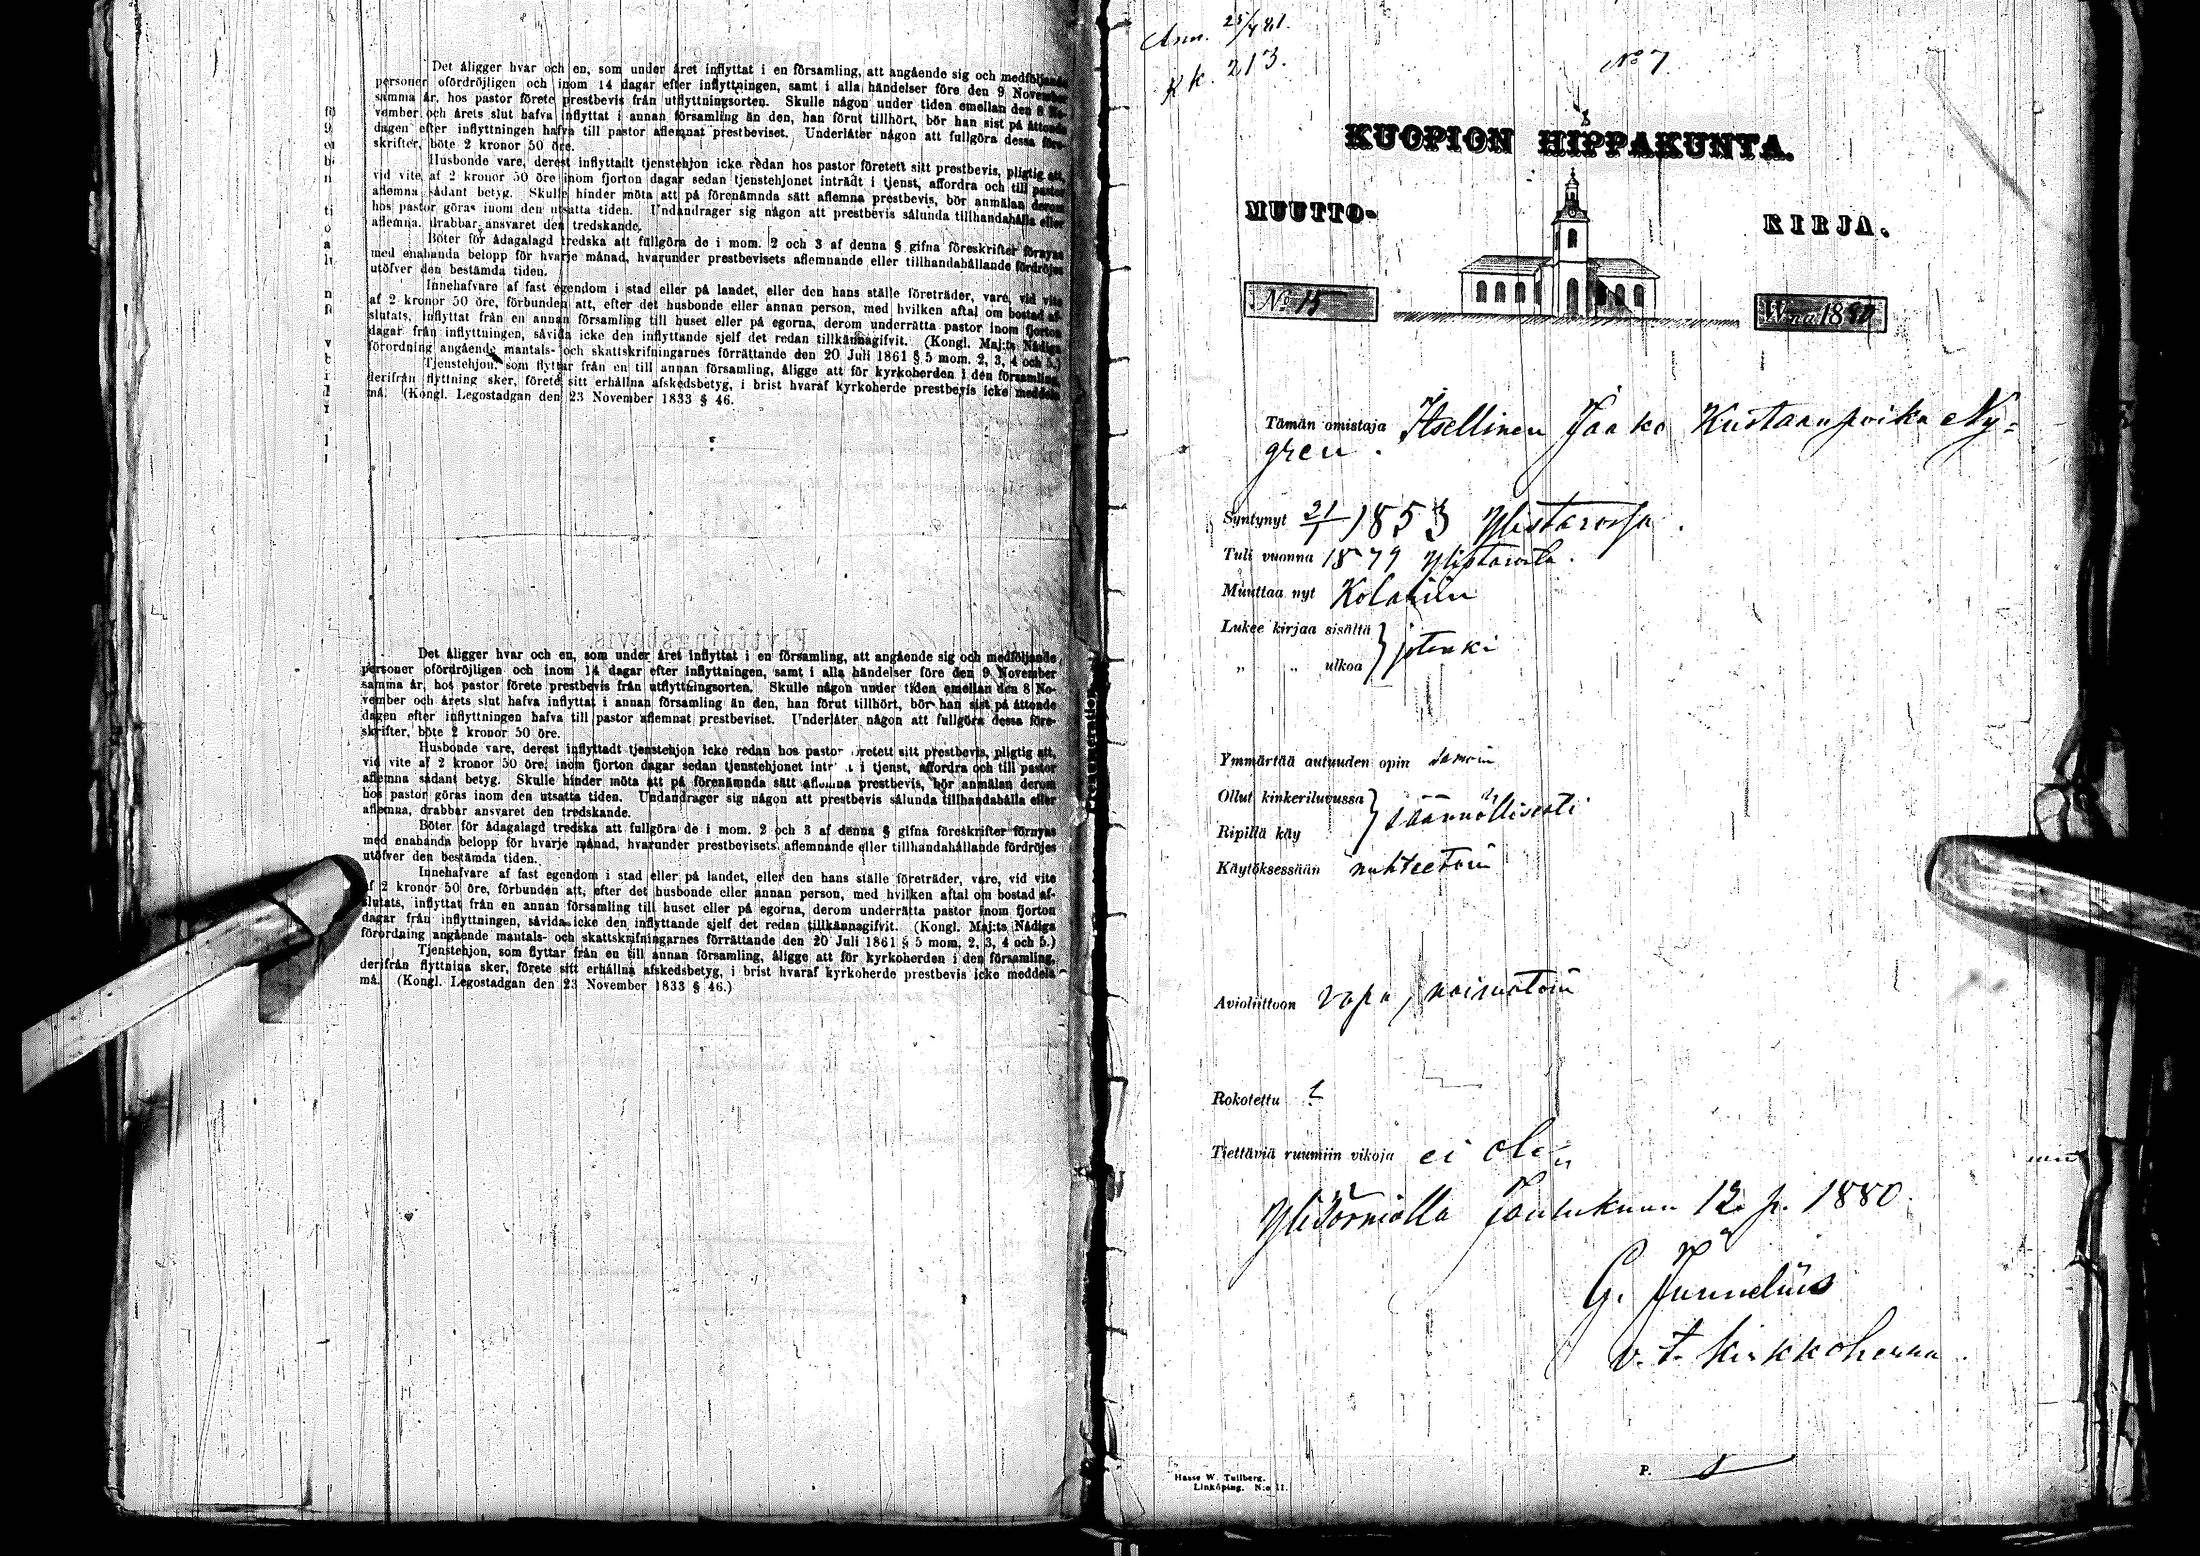 Det åligger hvar och en, som under året inflyttat i en församling, att angående sig och medföljande
personer ofördröjligen och inom 14 dagar efter inflyttningen, samt i alla händelser före den 9 November
samma år, hos pastor förete prestbevis från utflyttningsorten. Skulle någon under tiden emellan den 8 No-
vember och årets slut hafva inflyttat i annan församling än den, han förut tillhört, bör han sist på åttonde
dagen efter inflyttningen hafva till pastor aflemnat prestbeviset. Underlåter någon att fullgöra dessa före-
skrifter, böte 2 kronor 50 öre.
Husbonde vare, derest inflyttadt tjenstehjon icke redan hos pastor företett sitt prestbevis, pligtig att,
vid vite af 2 kronor 50 öre inom fjorton dagar sedan tjenstehjonet inträdt i tjenst, affordra och till pastor
aflemna sådant betyg. Skulle hinder möta att på förenämnda sätt aflemna prestbevis, bör anmälan derom
hos pastor göras inom den utsatta tiden. Undandrager sig någon att prestbevis sålunda tillhandahålla eller
aflemna, drabbar ansvaret den tredskande.
Böter för ådagalagd tredska att fullgöra de i mom. 2 och 3 af denna § gifna föreskrifter förnyas
med enahanda belopp för hvarje månad, hvarunder prestbevisets aflemnande eller tillhandahållande fördröjes
utöfver den bestämda tiden.
Innehafvare af fast egendom i stad eller på landet, eller den hans ställe företräder, vare, vid vite
af 2 kronor 50 öre, förbunden att, efter det husbonde eller annan person, med hvilken aftal om bostad af-
slutats, inflyttat från en annan församling till huset eller på egorna, derom underrätta pastor inom fjorton
dagar från inflyttningen, såvida icke den inflyttande sjelf det redan tillkännagifvit. (Kongl. Maj:ts Nådiga
förordning angående mantals- och skattskrifningarnes förrättande den 20 Juli 1861 § 5 mom. 2, 3, 4 och 5.)
Tjenstehjon, som flyttar från en till annan församling, åligge att för kyrkoherden i den församling,
derifrån flyttning sker, förete sitt erhållna afskedsbetyg, i brist hvaraf kyrkoherde prestbevis icke meddela
må. (Kongl. Legostadgan den 23 November 1833 § 46.
Det åligger hvar och en, som under året inflyttat i en församling, att angående sig och medföljande
personer ofördröjligen och inom 14 dagar efter inflyttningen, samt i alla händelser före den 9 November
samma år, hos pastor förete prestbevis från utflyttningsorten. Skulle någon under tiden emellan den 8 No-
vember och årets slut hafva inflyttat i annan församling än den, han förut tillhört, bör han sist på åttonde
dagen efter inflyttningen hafva till pastor aflemnat prestbeviset. Underlåter någon att fullgöra dessa före-
skrifter, böte 2 kronor 50 öre.
Husbonde vare, derest inflyttadt tjenstehjon icke redan hos pastor företett sitt prestbevis, pligtig att,
vid vite af 2 kronor 50 öre, inom fjorton dagar sedan tjenstehjonet i tjenst, affordra och till pastor
aflemna sådant betyg. Skulle hinder möta att på förenämnda sätt aflemna prestbevis, bör anmälan derom
hos pastor göras inom den utsatta tiden. Undandrager sig någon att prestbevis sålunda tillhandahålla eller
aflemna, drabbar ansvaret den tredskande.
Böter för ådagalagd tredska att fullgöra de i mom. 2 och 3 af denna § gifna föreskrifter förnyas
med enahanda belopp för hvarje månad, hvarunder prestbevisets aflemnande eller tillhandahållande fördröjes
utöfver den bestämda tiden.
Innehafvare af fast egendom i stad eller på landet, eller den hans ställe företräder, vare, vid vite
af 2 kronor 50 öre, förbunden att, efter det husbonde eller annan person, med hvilken aftal om bostad af-
slutats, inflyttat från en annan församling till huset eller på egorna, derom underrätta pastor inom fjorton
dagar från inflyttningen, såvida icke den inflyttande sjelf det redan tillkännagifvit. (Kongl. Maj:ts Nådiga
förordning angående mantals- och skattskrifningarnes förrättande den 20 Juli 1861 § 5 mom. 2, 3, 4 och 5.)
Tjenstehjon, som flyttar från en till annan församling, åligge att för kyrkoherden i den församling,
derifrån flyttning sker, förete sitt erhållna afskedsbetyg, i brist hvaraf kyrkoherde prestbevis icke meddela
må. (Kongl. Legostadgan den 23 November 1833 § 46.)
Ann. 25/4 81.
K k. 213.
No 7
KUOPION HIPPAKUNTA.
MUUTTO-KIRJA.
No 15
W:na 1880
Tämän omistaja Itsellinen Jaako Kustaanpoika Ny=
gren.
Syntynyt 21/1 1853 Ylistarossa.
Tuli vuonna 1879 Ylistarosta.
Muuttaa nyt Kolariin
Lukee kirjaa sisältä
" " ulkoa } jotenki
Ymmärtää autuuden opin samoin
Ollut kinkeriluvussa
Ripillä käy } säännöllisesti
Käytöksessään nuhteetoin
Avioliittoon vapa, naimatoin
Rokotettu ?
Tiettäviä ruumiin vikoja ei ole
Ylitorniolla Joulukuun 12 p. 1880.
G. Junnelius
v. t. kirkkoherra.
Hasse W. Tullberg.
Linköping. N:o 11.
P.